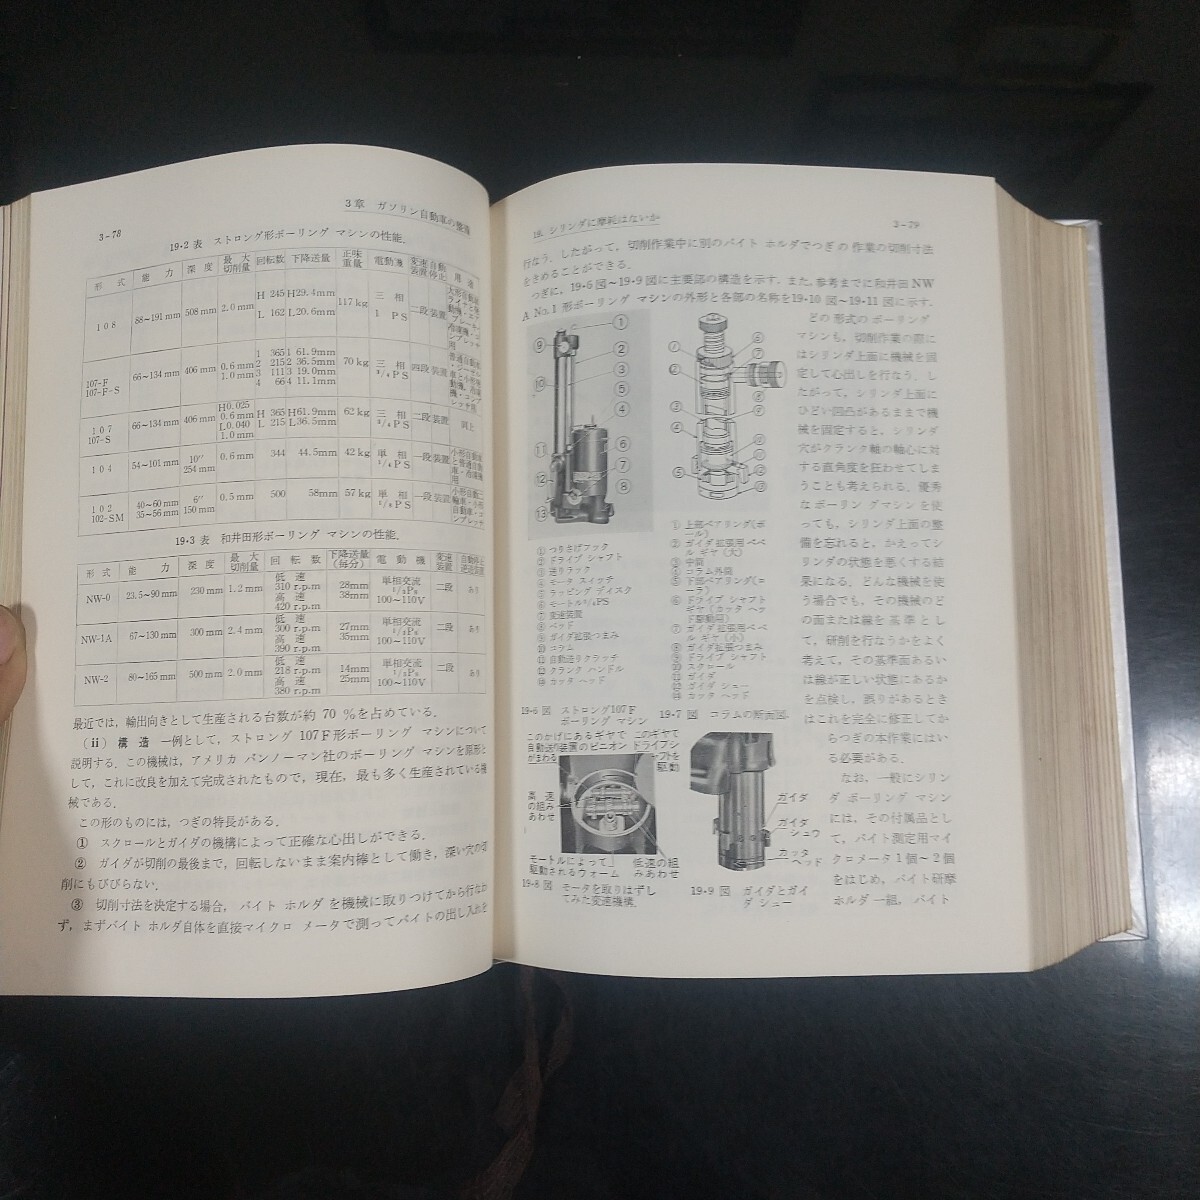 3章 ガソリン自動車の整備
3-78
19・2表 ストロング形ボーリング マシンの性能.
形 式 能 力 深 度 最 大 切削量 回転数 下降送量 正味 重量 電動機 変速 装置 自動 停止 用 途
108 88~191 mm 508 mm 2.0 mm H 245 L 162 H29.4mm L20.6mm 117 kg 三 相 1 PS 二段 装置
107-F 107-F-S 66~134 mm 406 mm 0.6 mm 1.0 mm 1 365 2 215 3 111 4 66 1 61.9mm 2 36.5mm 3 19.0mm 4 11.1mm 70 kg 三 相 3/4 PS 四段 装置
107 107-S 66~134 mm 406 mm H0.025 0.6 mm L0.040 1.0 mm H 365 L 215 H61.9mm L36.5mm 62 kg 三 相 3/4 PS 二段 装置 同上
104 54~101 mm 10″ 254 mm 0.6 mm 344 44.5mm 42 kg 単 相 1/4 PS 一段 装置
102 102-SM 40~60 mm 35~56 mm 6″ 150 mm 0.5 mm 500 58mm 57 kg 単 相 1/4 PS 一段 装置
19・3表 和井田形ボーリング マシンの性能.
形 式 能 力 深 度 最 大 切削量 回 転 数 下降送量 (毎分) 電 動 機 変速 装置 自動停止
NW-0 23.5~90 mm 230 mm 1.2 mm 低 速 310 r.p.m 高 速 420 r.p.m 28mm 38mm 単相交流 1/2Ps 100~110V 二段 あり
NW-1A 67~130 mm 300 mm 2.4 mm 低 速 300 r.p.m 高 速 390 r.p.m 27mm 35mm 単相交流 1/2Ps 100~110V 二段 あり
NW-2 80~165 mm 500 mm 2.0 mm 低 速 218 r.p.m 高 速 380 r.p.m 14mm 25mm 単相交流 1/2Ps 100~110V 二段 あり
最近では, 輸出向きとして生産される台数が約 70 %を占めている.
(ii) 構 造 一例として, ストロング 107F形ボーリング マシンについて
説明する. この機械は, アメリカ バンノーマン社のボーリング マシンを原形と
して, これに改良を加えて完成されたもので, 現在, 最も多く生産されている機
械である.
この形のものには, つぎの特長がある.
① スクロールとガイダの機構によって正確な心出しができる.
② ガイダが切削の最後まで, 回転しないまま案内棒として働き, 深い穴の切
削にもびびらない.
③ 切削寸法を決定する場合, バイト ホルダを機械に取りつけてから行なわ
ず, まずバイト ホルダ自体を直接マイクロ メータで測ってバイトの出し入れを
19. シリンダに摩耗はないか
3-79
行なう. したがって, 切削作業中に別のバイト ホルダでつぎの作業の切削寸法
をきめることができる.
つぎに, 19・6図~19・9図に主要部の構造を示す. また, 参考までに和井田NW
A No.1形ボーリング マシンの外形と各部の名称を19・10図~19・11図に示す.
どの形式のボーリング
マシンも, 切削作業の際に
はシリンダ上面に機械を固
定して心出しを行なう. し
たがって, シリンダ上面に
ひどい凹凸があるままで機
械を固定すると, シリンダ
穴がクランク軸の軸心に対
する直角度を狂わせてしま
うことも考えられる. 優秀
なボーリングマシンを使
っても, シリンダ上面の整
備を忘れると, かえってシ
リンダの状態を悪くする結
果になる. どんな機械を使
う場合でも, その機械のど
の面または線を基準とし
て, 研削を行なうかをよく
考えて, その基準面あるい
は線が正しい状態にあるか
を点検し, 誤りがあるとき
はこれを完全に修正してか
らつぎの本作業にはい
る必要がある.
なお, 一般にシリン
ダ ボーリング マシン
には, その付属品とし
て, バイト測定用マイ
クロメータ1個~2個
をはじめ, バイト研摩
ホルダ一組, バイト
① つりさげフック
② ドライブ シャフト
③ 送りラック
④ モータ スイッチ
⑤ ラッピング ディスク
⑥ モートル3/4PS
⑦ 変速装置
⑧ ベッド
⑨ ガイダ拡張つまみ
⑩ コラム
⑪ 自動送りクラッチ
⑫ クランク ハンドル
⑬ カッタ ヘッド
19・6図 ストロング107F
ボーリング マシン
① 上部ベアリング(ボ
ール)
② ガイダ拡張用ベベ
ル ギヤ(大)
③ 中筒
④ コラム外筒
⑤ 下部ベアリング(コ
ーラ)
⑥ ドライブ シャフト
ギヤ(カッタ ヘッ
ド駆動用)
⑦ ガイダ拡張用ベベ
ル ギヤ(小)
⑧ ガイダ拡張つまみ
⑨ ドライブ シャフト
⑩ スクロール
⑪ ガイダ
⑫ ガイダ シュー
⑬ カッタ ヘッド
19・7図 コラムの断面図.
このかげにあるギヤで
自動送り装置のピニオン
がまわる
このギヤで
ドライブシ
ャフトを
駆動
高 速
の組み
あわせ
モートルによって
駆動されるウォーム
低速の組
みあわせ
19・8図 モータを取りはずし
てみた変速機構.
ガイダ
ガイダ
シュウ
カッタ
ヘッド
19・9図 ガイダとガイ
ダ シュー